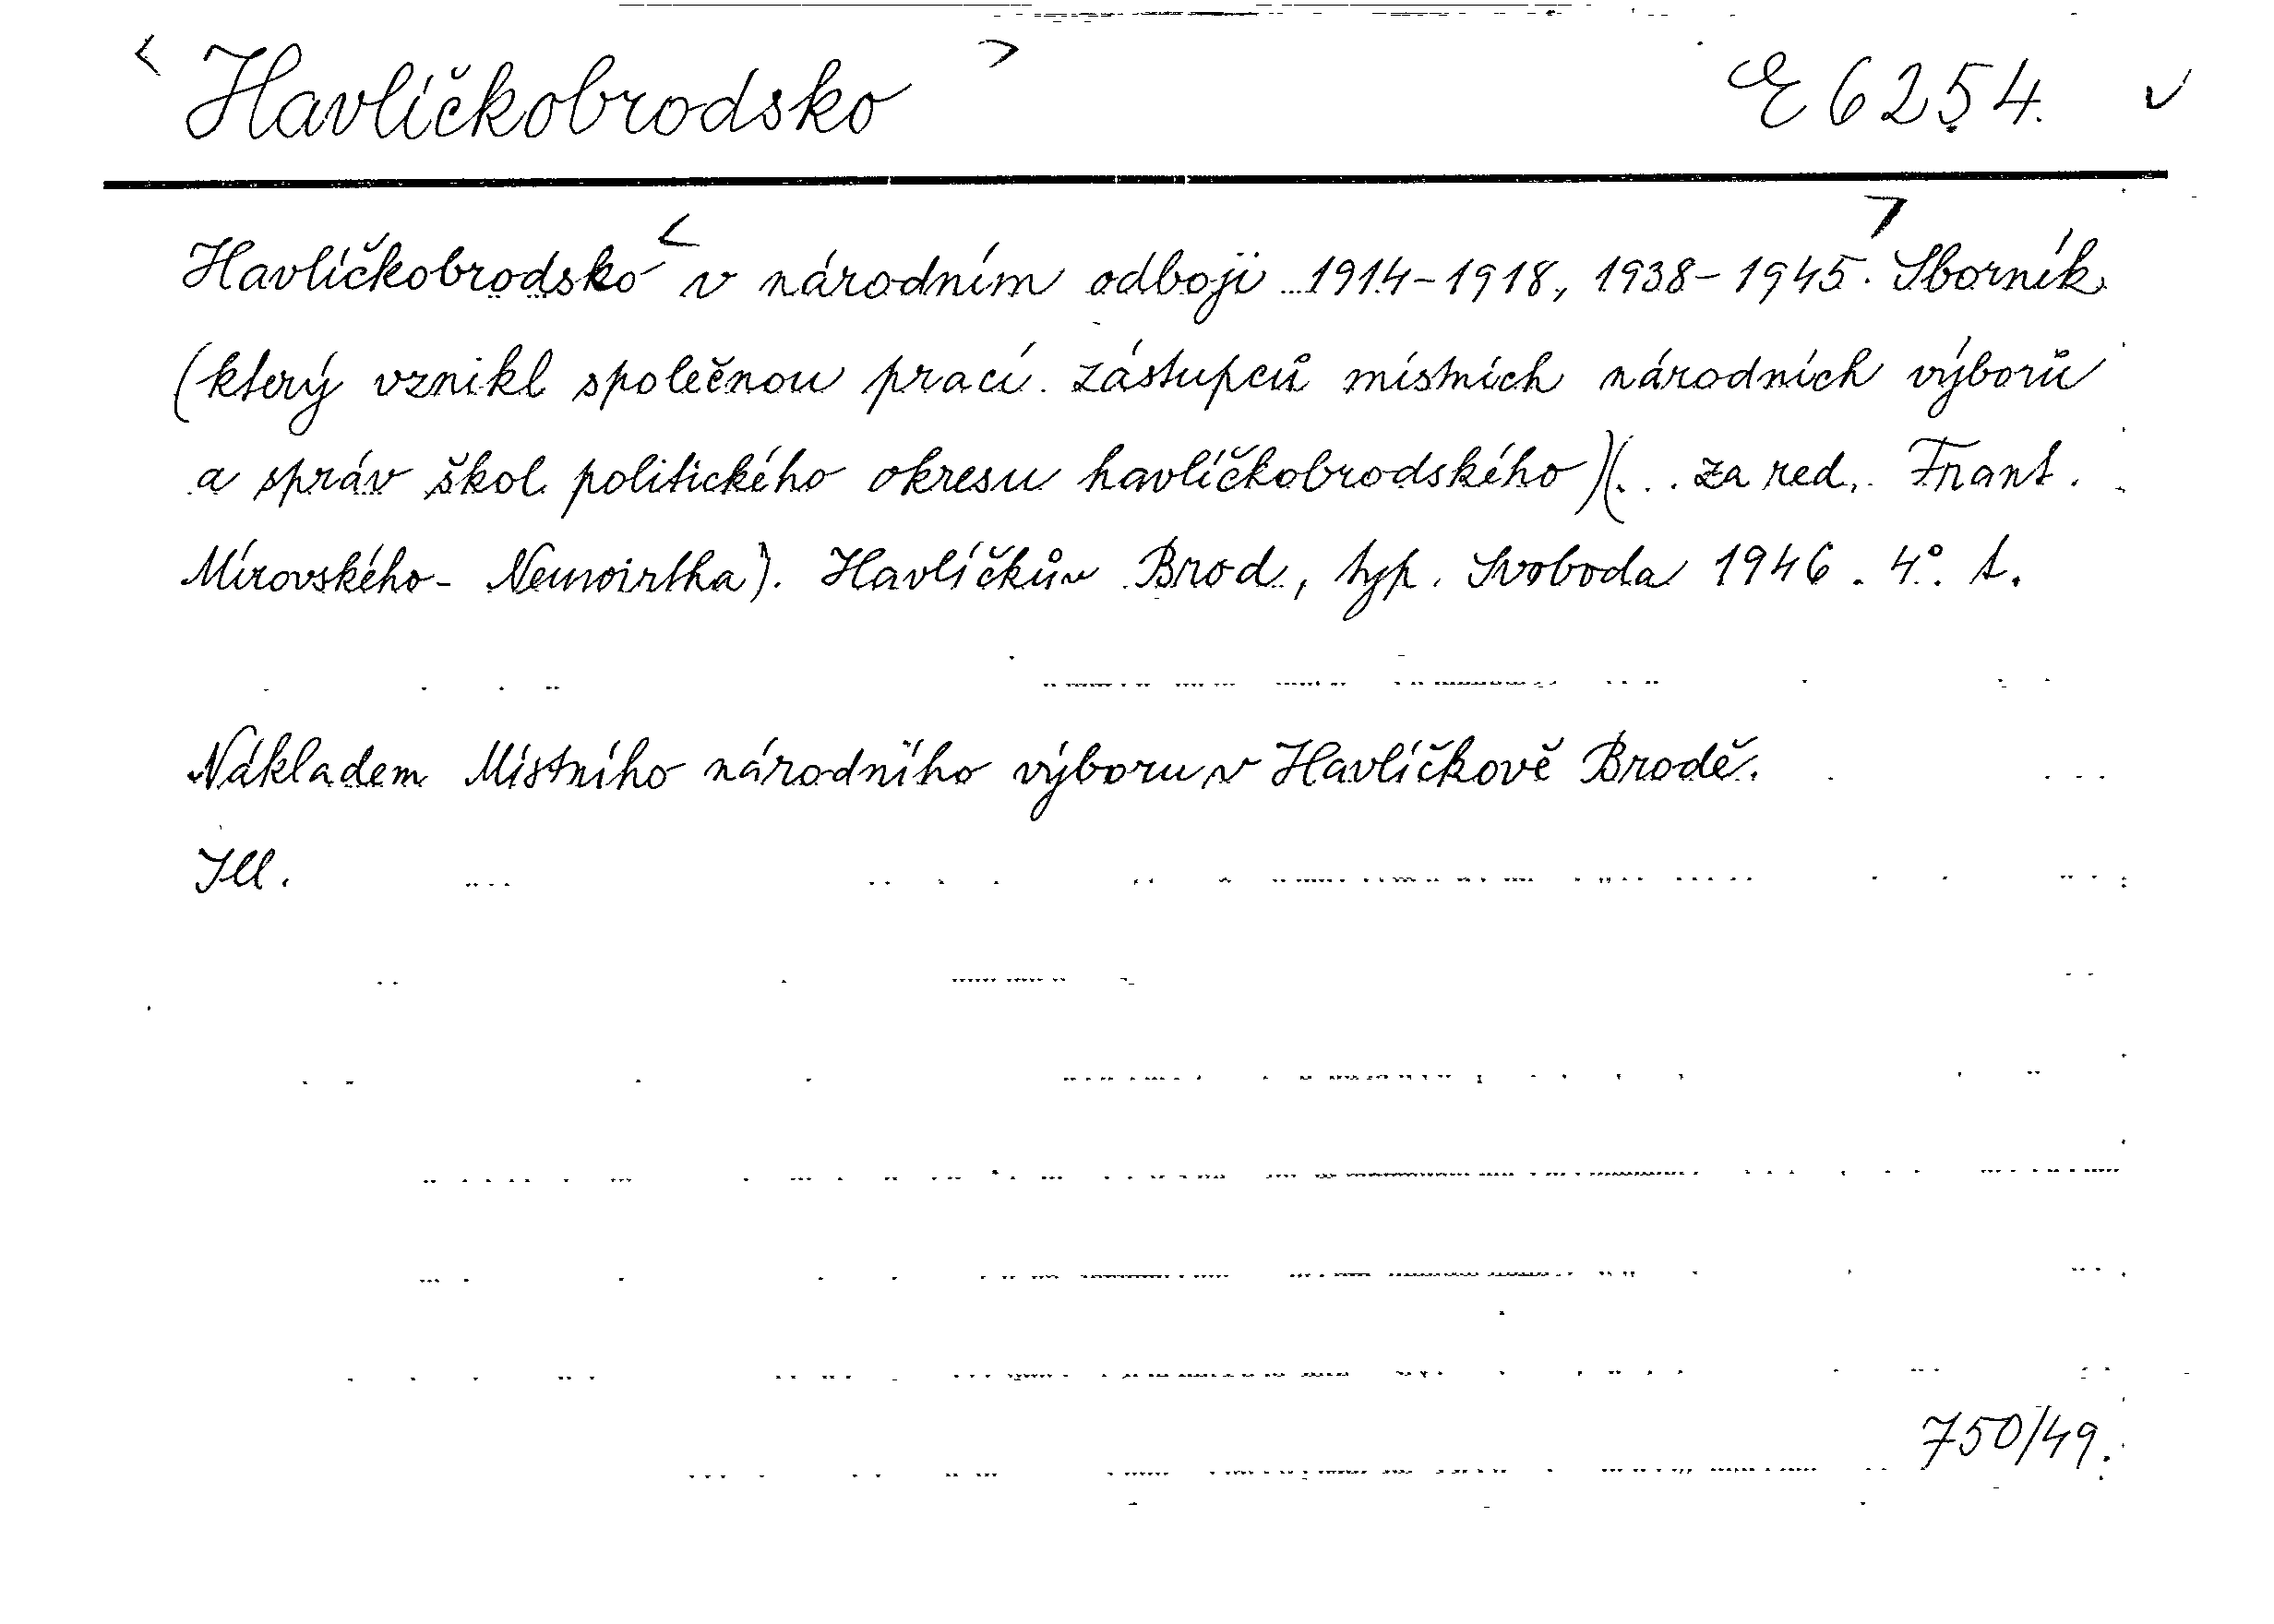 < Havlíčkobrodsko > E 6254. ✓
Havlíčkobrodsko < v národním odboji 1914-1918, 1938-1945 >. Sborník
(který vznikl společnou prací zástupců místních národních výborů
a správ škol politického okresu havlíčkobrodského)(... za red. Frant.
Mírovského-Neuwirtha). Havlíčkův Brod, typ. Svoboda 1946. 4°. t.
Nákladem Místního národního výboru v Havlíčkově Brodě.
Ill.
750/49.